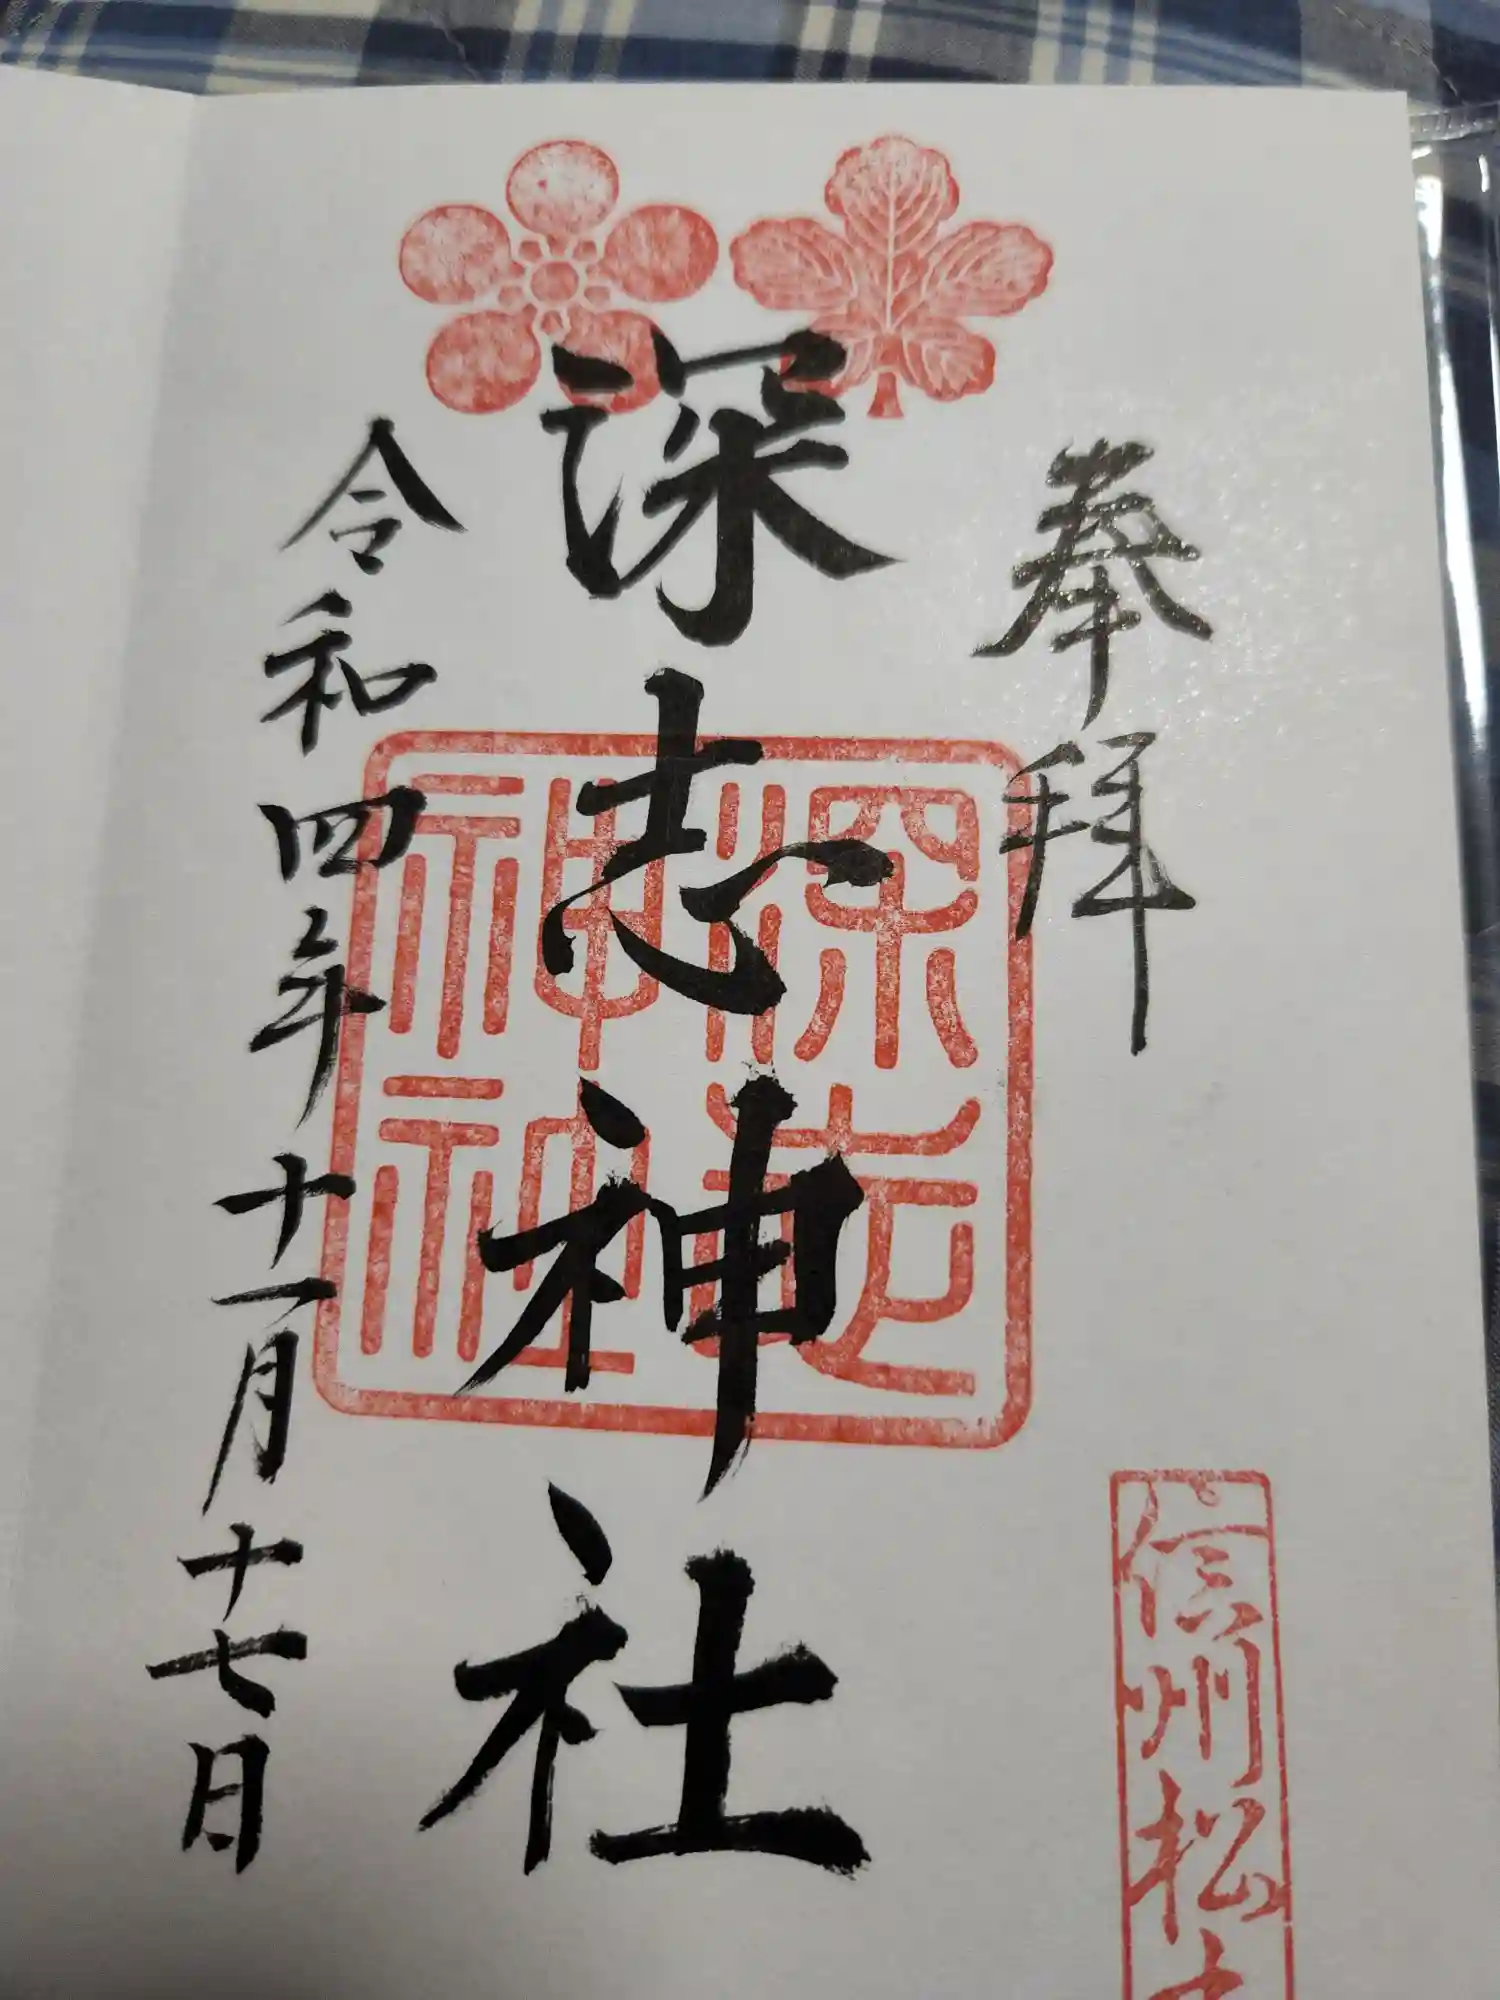 奉拝
深志神社
令和四年十一月十七日
深志
神社
信州松本